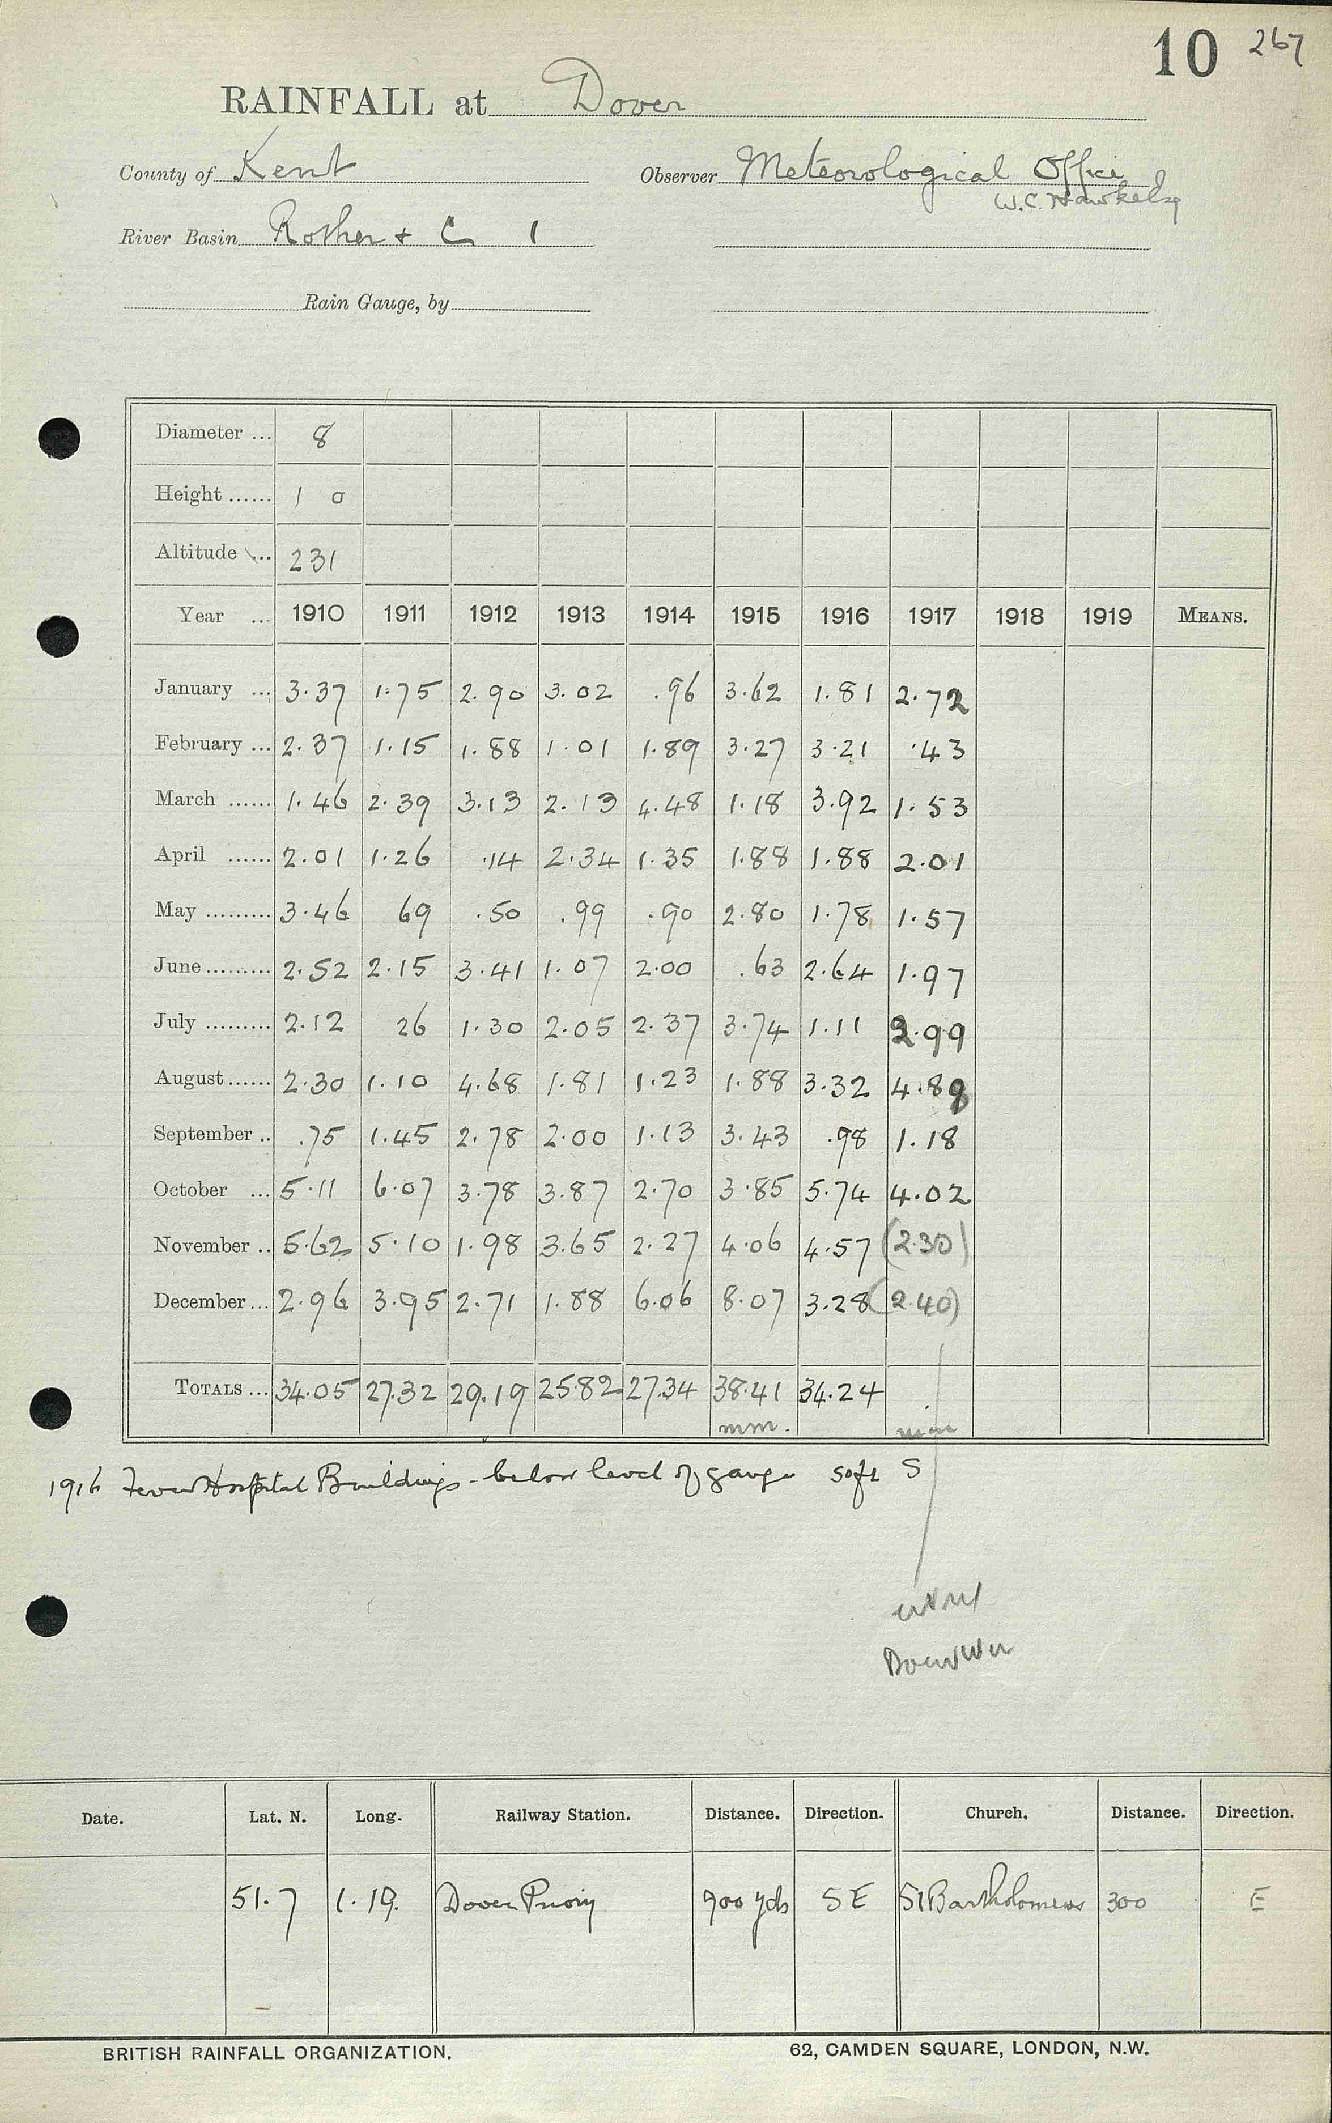 10 267
RAINFALL at Dover
County of Kent Observer Meteorological Office
W.C. Hawke
River Basin Rother + C 1
Rain Gauge, by
Diameter ... 8
Height ...... 1 0
Altitude ... 231
Year ... 1910 1911 1912 1913 1914 1915 1916 1917 1918 1919 MEANS.
January ... 3.37 1.75 2.90 3.02 .96 3.62 1.81 2.72
February ... 2.37 1.15 1.88 1.01 1.89 3.27 3.21 .43
March ...... 1.46 2.39 3.13 2.13 4.48 1.18 3.92 1.53
April ...... 2.01 1.26 .14 2.34 1.35 1.88 1.88 2.01
May ......... 3.46 69 .50 .99 .90 2.80 1.78 1.57
June ......... 2.52 2.15 3.41 1.07 2.00 .63 2.64 1.97
July ......... 2.12 26 1.30 2.05 2.37 3.74 1.11 2.99
August ...... 2.30 1.10 4.68 1.81 1.23 1.88 3.32 4.89
September .. .75 1.45 2.78 2.00 1.13 3.43 .98 1.18
October ... 5.11 6.07 3.78 3.87 2.70 3.85 5.74 4.02
November .. 5.62 5.10 1.98 3.65 2.27 4.06 4.57 (2.30)
December ... 2.96 3.95 2.71 1.88 6.06 8.07 3.28 (2.40)
TOTALS ... 34.05 27.32 29.19 25.82 27.34 38.41 34.24
mm.
1916 Fever Hospital Buildings - below level of gauge 50ft S
Date. Lat. N. Long. Railway Station. Distance. Direction. Church. Distance. Direction.
51.7 1.19. Dover Priory 900 yds SE St Bartholomews 300 E
BRITISH RAINFALL ORGANIZATION. 62, CAMDEN SQUARE, LONDON, N.W.